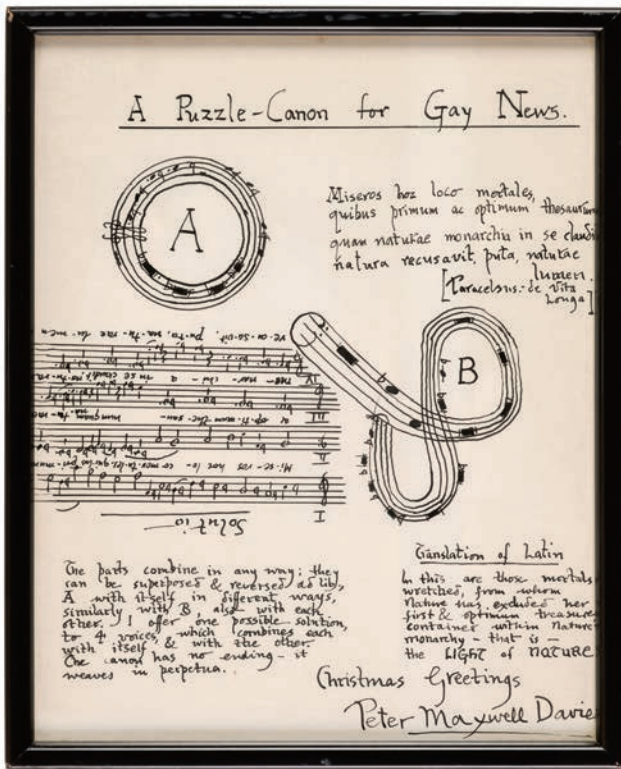 A Puzzle-Canon for Gay News.
A
Miseros hoc loco mortales,
quibus primum ac optimum thesaurum
quam naturae monarchia in se claudit
natura recusavit, puta, naturae
lumen.
[Paracelsus: de Vita
Longa]
B
re-cu-sa-vit, pu-ta, na-tu-rae lu-men
IV
III
II
I
Solutio
The parts combine in any way; they
can be superposed & reversed ad lib,
A with itself in different ways,
similarly with B, also with each
other. I offer one possible solution,
to 4 voices, which combines each
with itself, & with the other.
The canon has no ending - it
weaves in perpetua..
Translation of Latin
In this are those mortals
wretched, from whom
Nature has excluded her
first & optimum treasure
contained within Nature
monarchy - that is -
the LIGHT of NATURE
Christmas Greetings
Peter Maxwell Davie